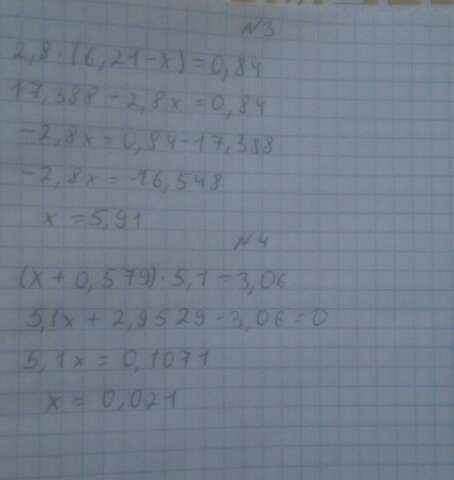 N3
2,8 · (6,21 - x) = 0,84
17,388 - 2,8x = 0,84
-2,8x = 0,84 - 17,388
-2,8x = -16,548
x = 5,91
N4
(x + 0,579) · 5,1 = 3,06
5,1x + 2,9529 - 3,06 = 0
5,1x = 0,1071
x = 0,021